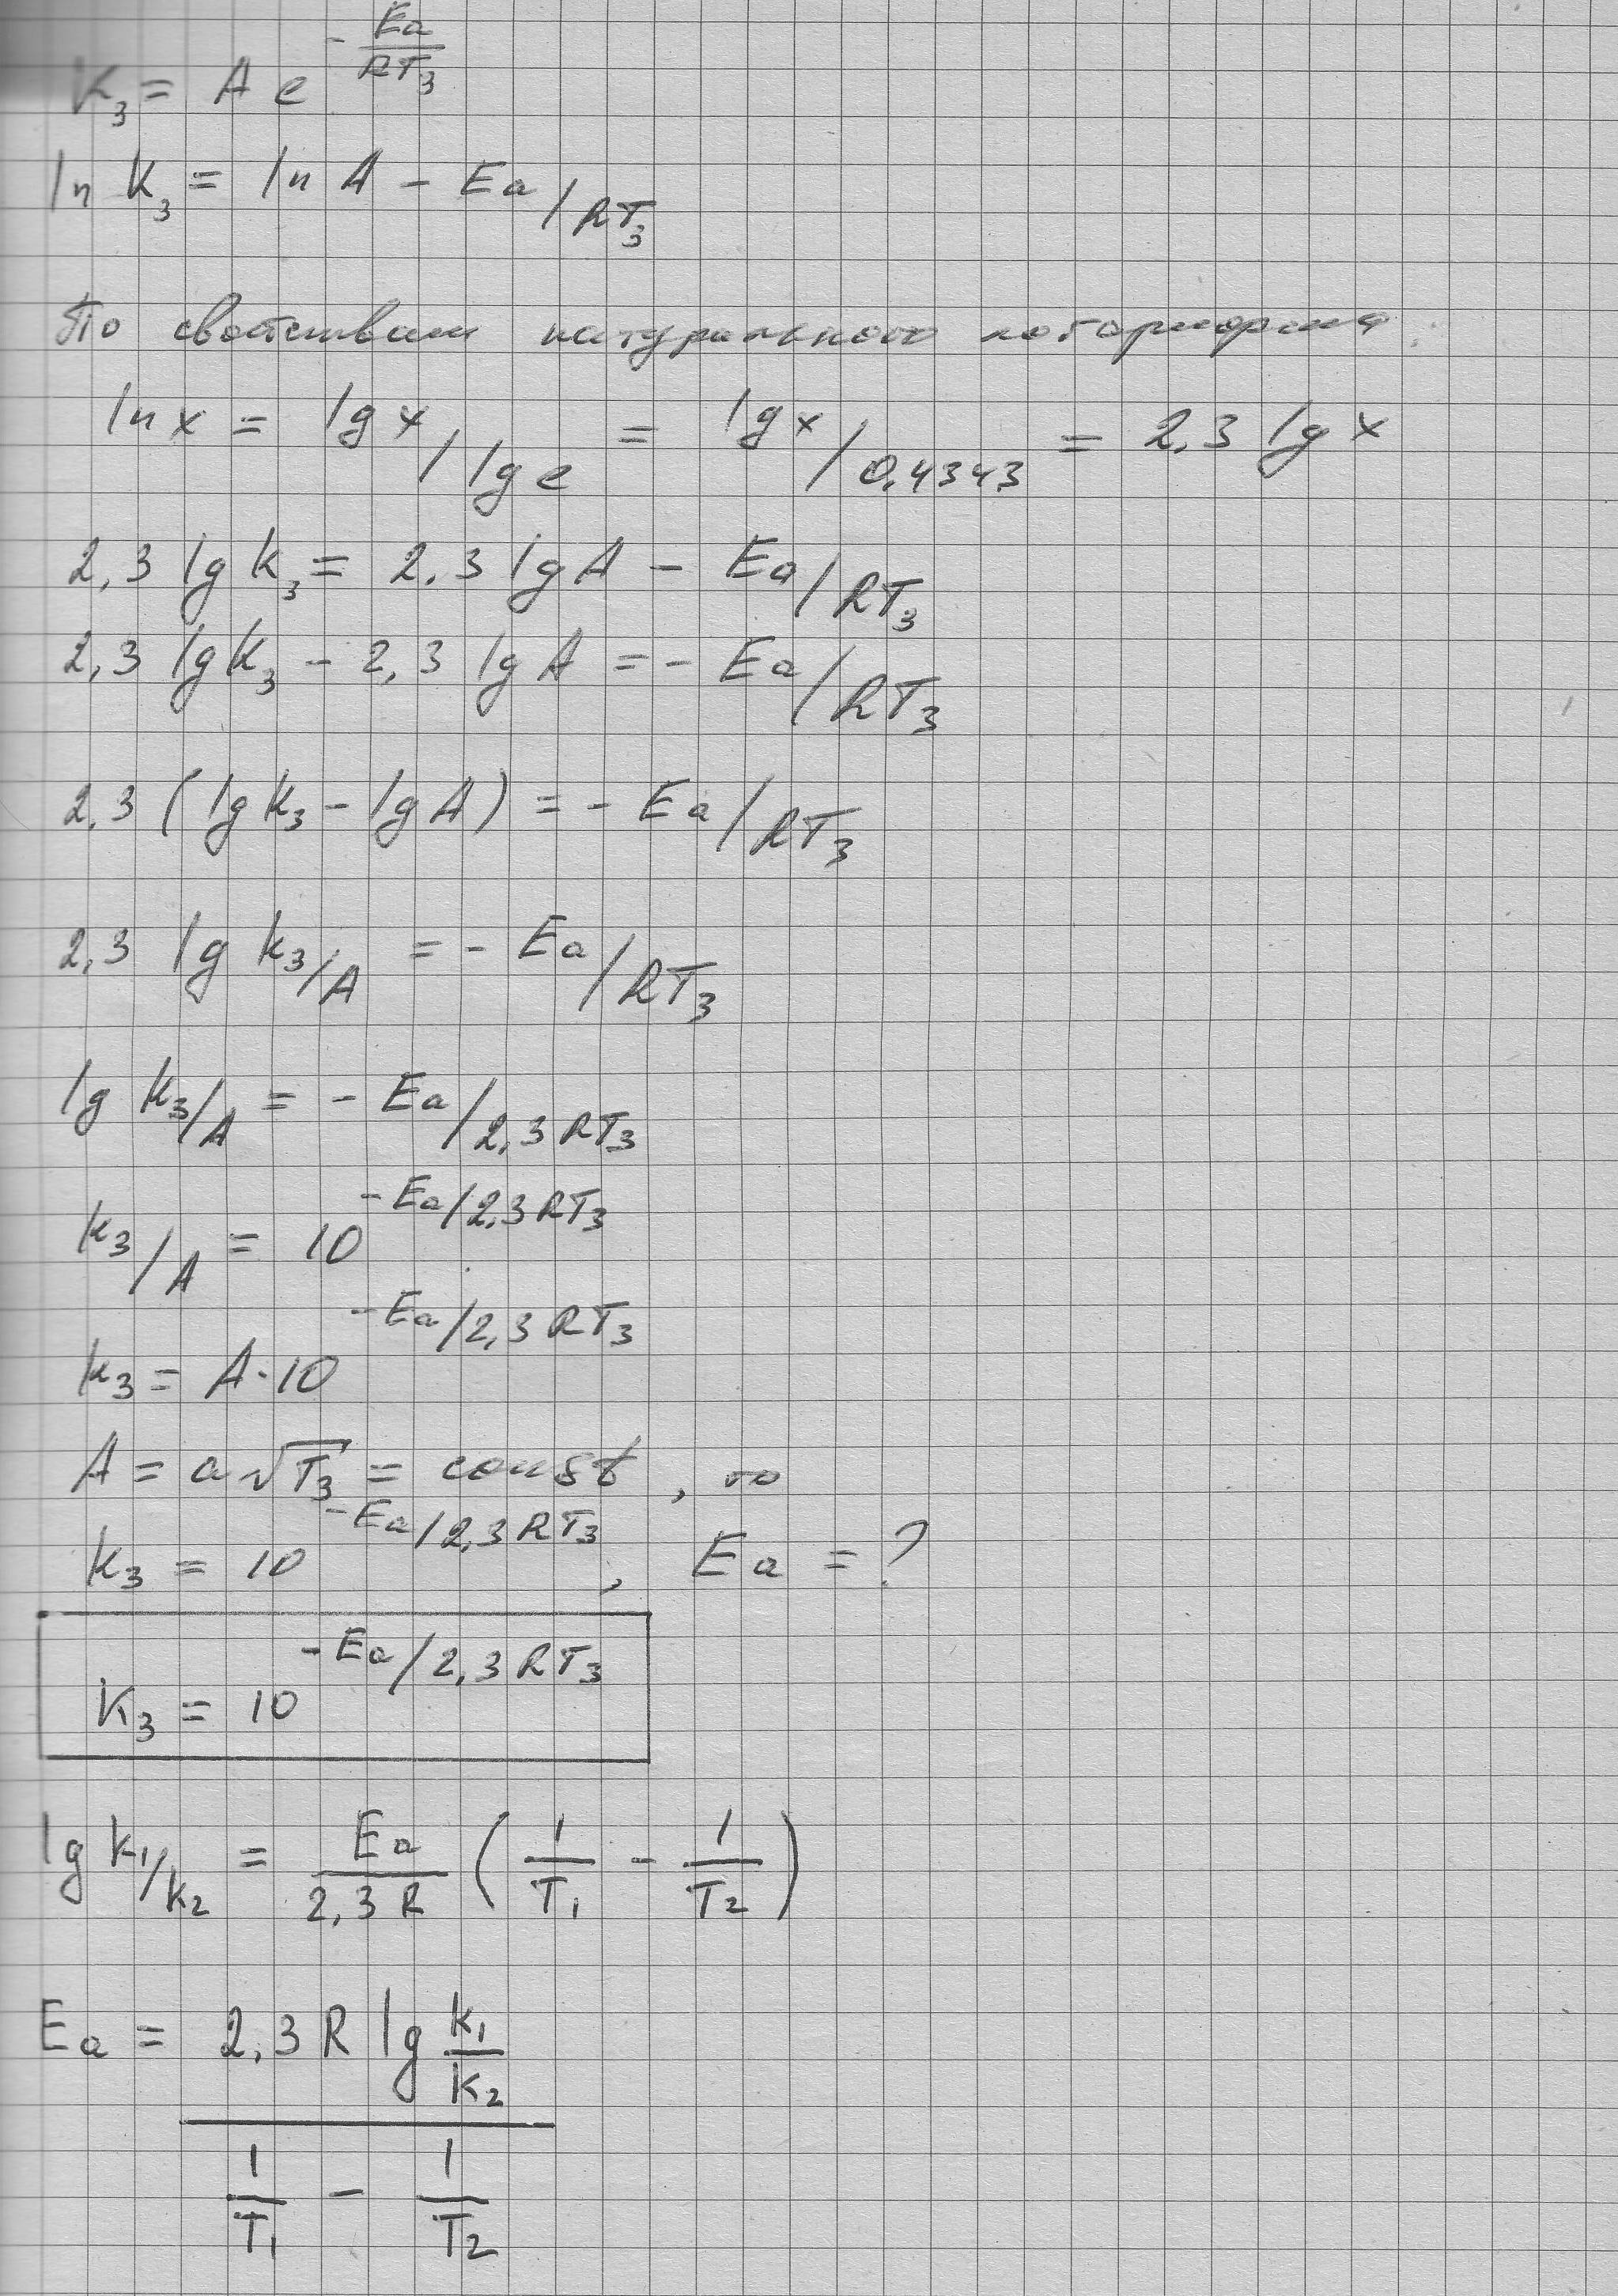 K₃ = A e^(-Ea/RT₃)
ln K₃ = ln A - Ea/RT₃
По свойствам натурального логарифма:
ln x = lg x / lg e = lg x / 0,4343 = 2,3 lg x
2,3 lg K₃ = 2,3 lg A - Ea/RT₃
2,3 lg K₃ - 2,3 lg A = - Ea/RT₃
2,3 (lg K₃ - lg A) = - Ea/RT₃
2,3 lg K₃/A = - Ea/RT₃
lg K₃/A = - Ea/2,3 RT₃
K₃/A = 10^(-Ea/2,3 RT₃)
K₃ = A · 10^(-Ea/2,3 RT₃)
A = a√T₃ = const, то
K₃ = 10^(-Ea/2,3 RT₃), Ea = ?
K₃ = 10^(-Ea/2,3 RT₃)
lg K₁/K₂ = Ea/2,3 R (1/T₁ - 1/T₂)
Ea = 2,3 R lg K₁/K₂ / (1/T₁ - 1/T₂)